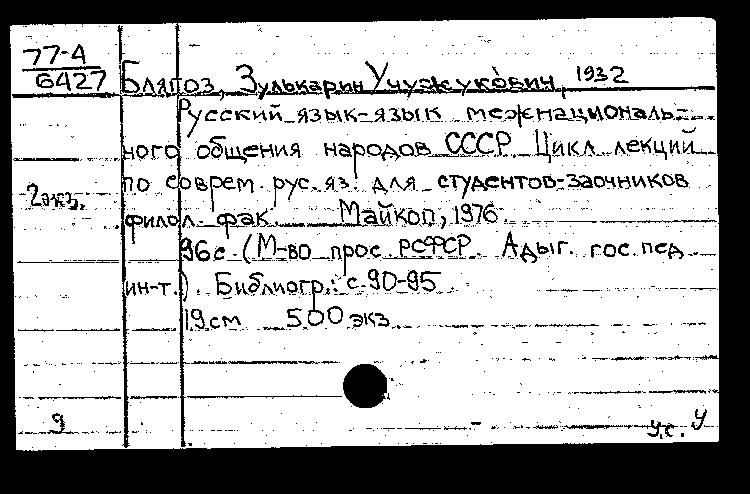 77-4
6427
Бляпоз, Зулькарин Учужукович, 1932
Русский язык-язык межнациональ-
ного общения народов СССР Цикл лекций
по соврем. рус. яз. для студентов-заочников
2 экз.
филол. фак. Майкоп, 1976.
96 с. (М-во прос. РСФСР. Адыг. гос. пед.
ин-т.). Библиогр.: с. 90-95
19 см 500 экз
9
У.с. У